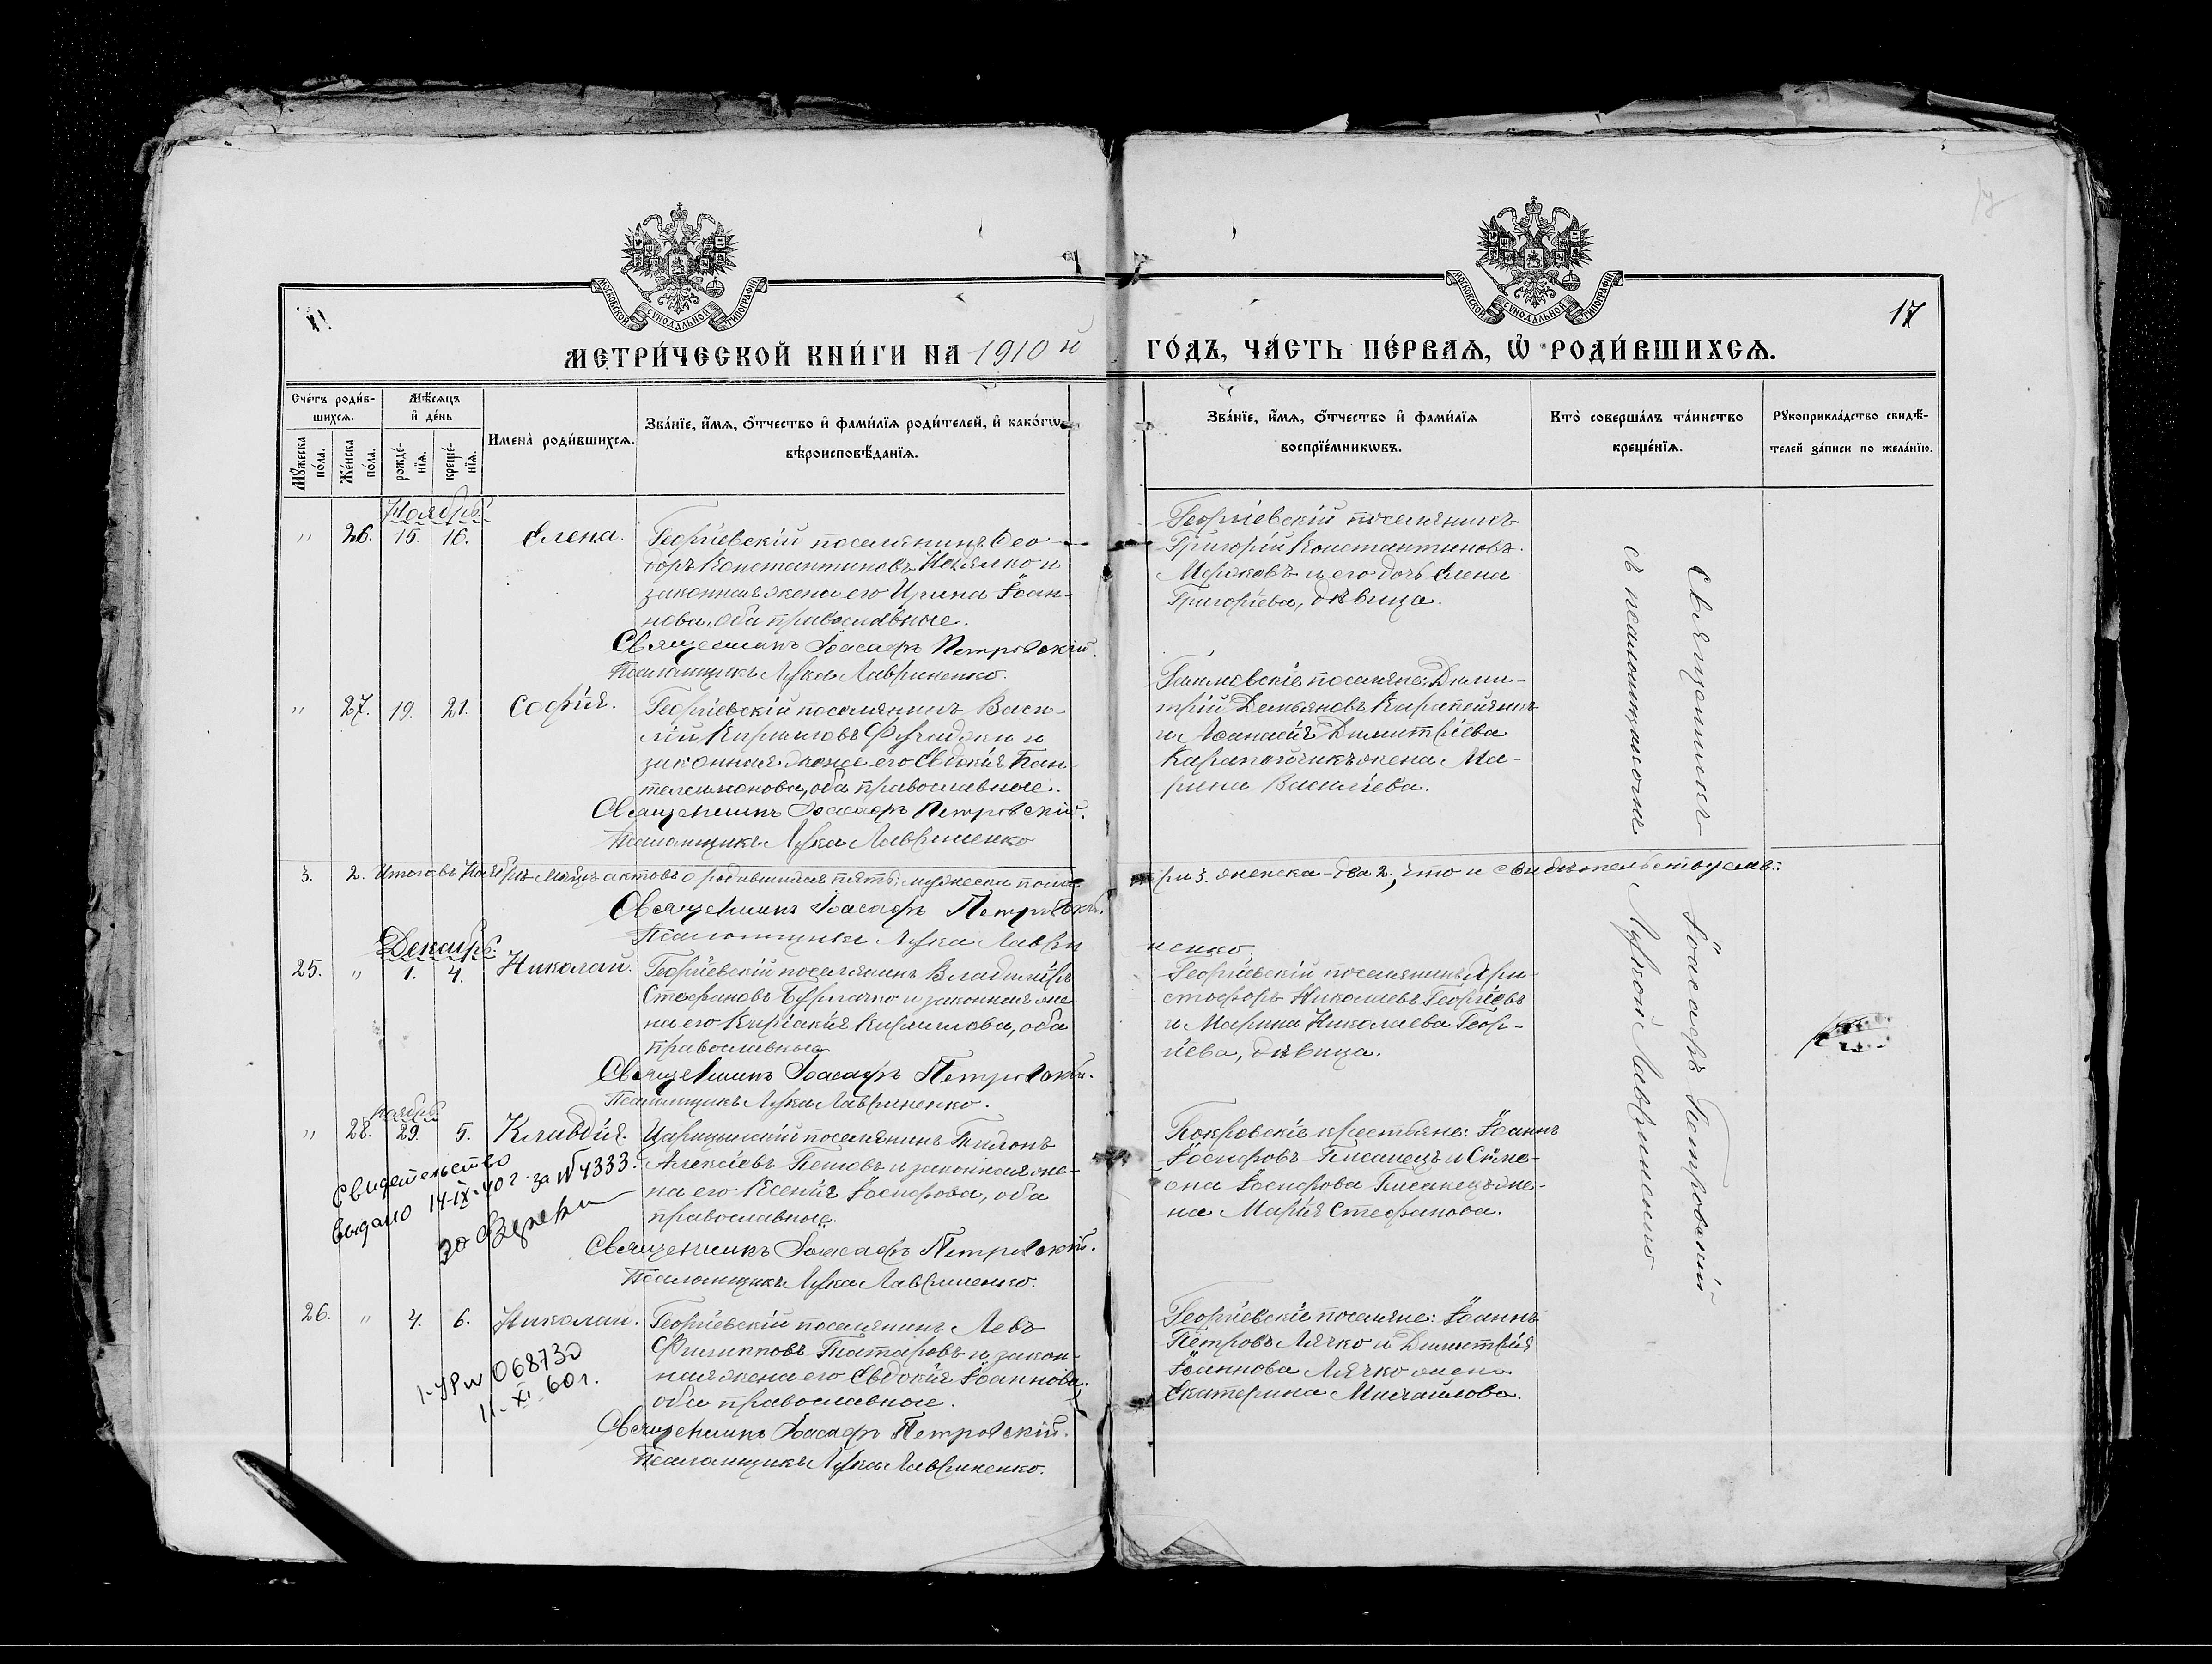 МОСКОВСКОЙ СѴНОДАЛЬНОЙ ТИПОГРАФІИ
МОСКОВСКОЙ СѴНОДАЛЬНОЙ ТИПОГРАФІИ
17
МЕТРИ́ЧЕСКОЙ КНИ́ГИ НА 1910 й ГО́ДЪ, ЧА́СТЬ ПЕ́РВАѦ, Ѽ РОДИ́ВШИХСѦ.
Сче́тъ роди́в-
шихсѧ.
Мꙋ́жеска по́ла.
Же́нска по́ла.
Мѣ́сѧцъ
и҆ де́нь
рожде́-нїѧ.
креще́-нїѧ.
Имена̀ роди́вшихсѧ.
Зва́нїе, и҆́мѧ, ѻ҆́тчество и҆ фами́лїѧ роди́телей, и҆ како́гѡ
вѣроисповѣ́данїѧ.
Зва́нїе, и҆́мѧ, ѻ҆́тчество и҆ фами́лїѧ
воспрїе́мникѡвъ.
Кто̀ соверша́лъ та́инство
креще́нїѧ.
Рꙋкоприкла́дство свидѣ́-
телей за́писи по жела́нїю.
Ноябрь.
" 26. 15. 16. Елена.
Георгіевскій поселянинъ Ѳео-
доръ Константиновъ
законная жена его Ирина Іоан-
нова, оба православные.
Священникъ Іоасафъ Петровскій.
Псаломщикъ Лука Лавриненко.
Георгіевскій поселянинъ
Григорій Константиновъ
и его дочь Елена
Григоріева, дѣвица.
" 27. 19. 21. Софія.
Георгіевскій поселянинъ Васи-
лій Кирилловъ и
законная жена его Евдокія Пан-
телеимонова, оба православные.
Священникъ Іоасафъ Петровскій.
Псаломщикъ Лука Лавриненко
поселяне: Дими-
трій Демьяновъ
и Димитріева
жена Ма-
рина Васильева.
3. 2. Итого въ Ноябрѣ мѣсяцѣ актовъ о родившихся пять: мужеска пола три 3. женска - два 2., что и свидѣтельствуемъ:
Священникъ Іоасафъ Петровскій.
Псаломщикъ Лука Лаври
ненко
Декабрь.
25. " 1. 4. Николай.
Георгіевскій поселянинъ Владиміръ
Стефановъ и законная же-
на его Киріакія Кириллова, оба
православные
Священникъ Іоасафъ Петровскій.
Псаломщикъ Лука Лавриненко.
Георгіевскій поселянинъ Хри-
стофоръ Николаевъ Георгіевъ
и Марина Николаева Геор-
гіева, дѣвица.
ноябрь
" 28. 29. 5. Клавдія.
Царицынскій поселянинъ Тихонъ
Алексіевъ и законная же-
на его Ксенія Іосифова, оба
православные.
Священникъ Іоасафъ Петровскій.
Псаломщикъ Лука Лавриненко.
Покровскіе крестьяне: Іоаннъ
Іосифовъ Писанецъ и Симе-
она Іосифова Писанецъ же-
на Марія Стефанова.
Свидетельство
выдано 14-IX-40 г. за № 4333.
26. " 4. 6. Николай.
Георгіевскій поселянинъ Левъ
Филипповъ Татаровъ и закон-
ная жена его Евдокія Іоаннова.
оба православные.
Священникъ Іоасафъ Петровскій.
Псаломщикъ Лука Лавриненко.
Георгіевскіе поселяне: Іоаннъ
Петровъ Лячко и Димитрія
Іоаннова Лячко жена
Екатерина Михайлова.
068730
11-XI-60 г.
Священникъ Іоасафъ Петровскій
съ псаломщикомъ Лукой Лавриненко